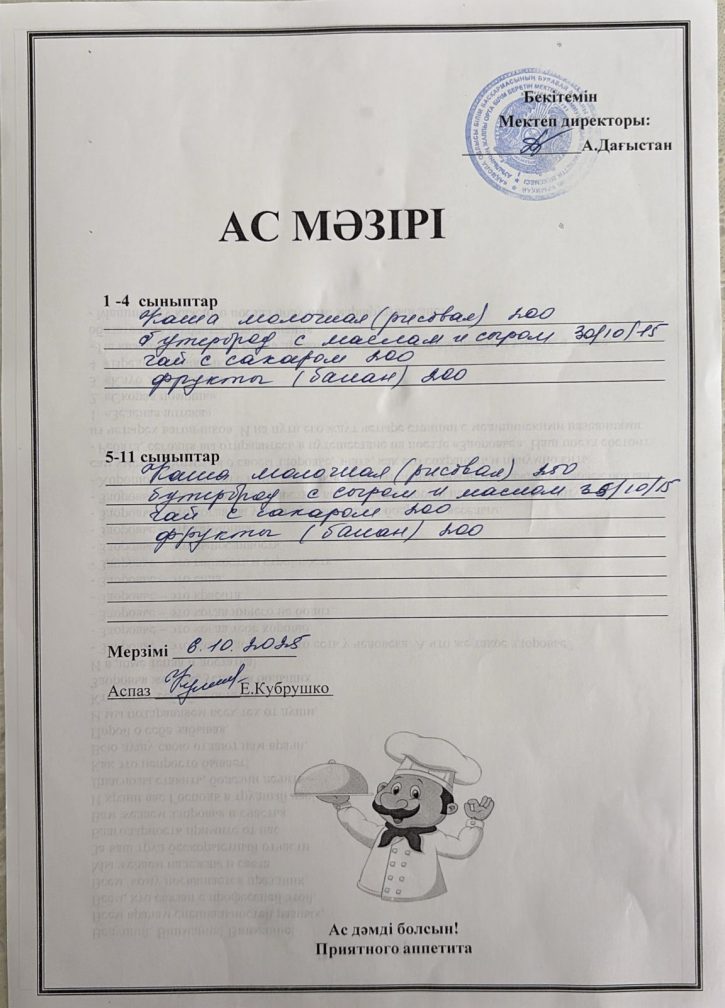 Бекітемін
Мектеп директоры:
А.Дағыстан
АС МӘЗІРІ
1 -4 сыныптар
Каша молочная (рисовая) 200
бутерброд с маслом и сыром 30/10/15
чай с сахаром 200
фрукты (банан) 200
5-11 сыныптар
Каша молочная (рисовая) 250
бутерброд с сыром и маслом 35/10/15
чай с сахаром 200
фрукты (банан) 200
Мерзімі 6.10.2025
Аспаз Е.Кубрушко
Ас дәмді болсын!
Приятного аппетита